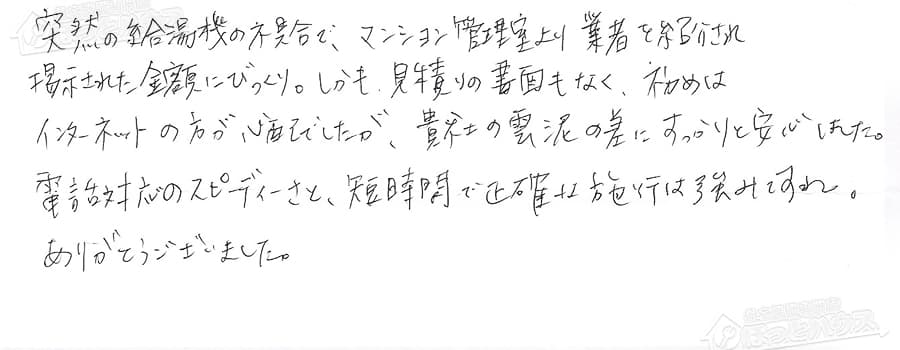 突然の給湯機の不具合で、マンション管理室より業者を紹介され
掲示された金額にびっくり。しかも、見積りの書面もなく、初めは
インターネットの方が心配でしたが、貴社の雲泥の差にすっかりと安心しました。
電話対応のスピーディーさと、短時間で正確な施行は強みですね。
ありがとうございました。